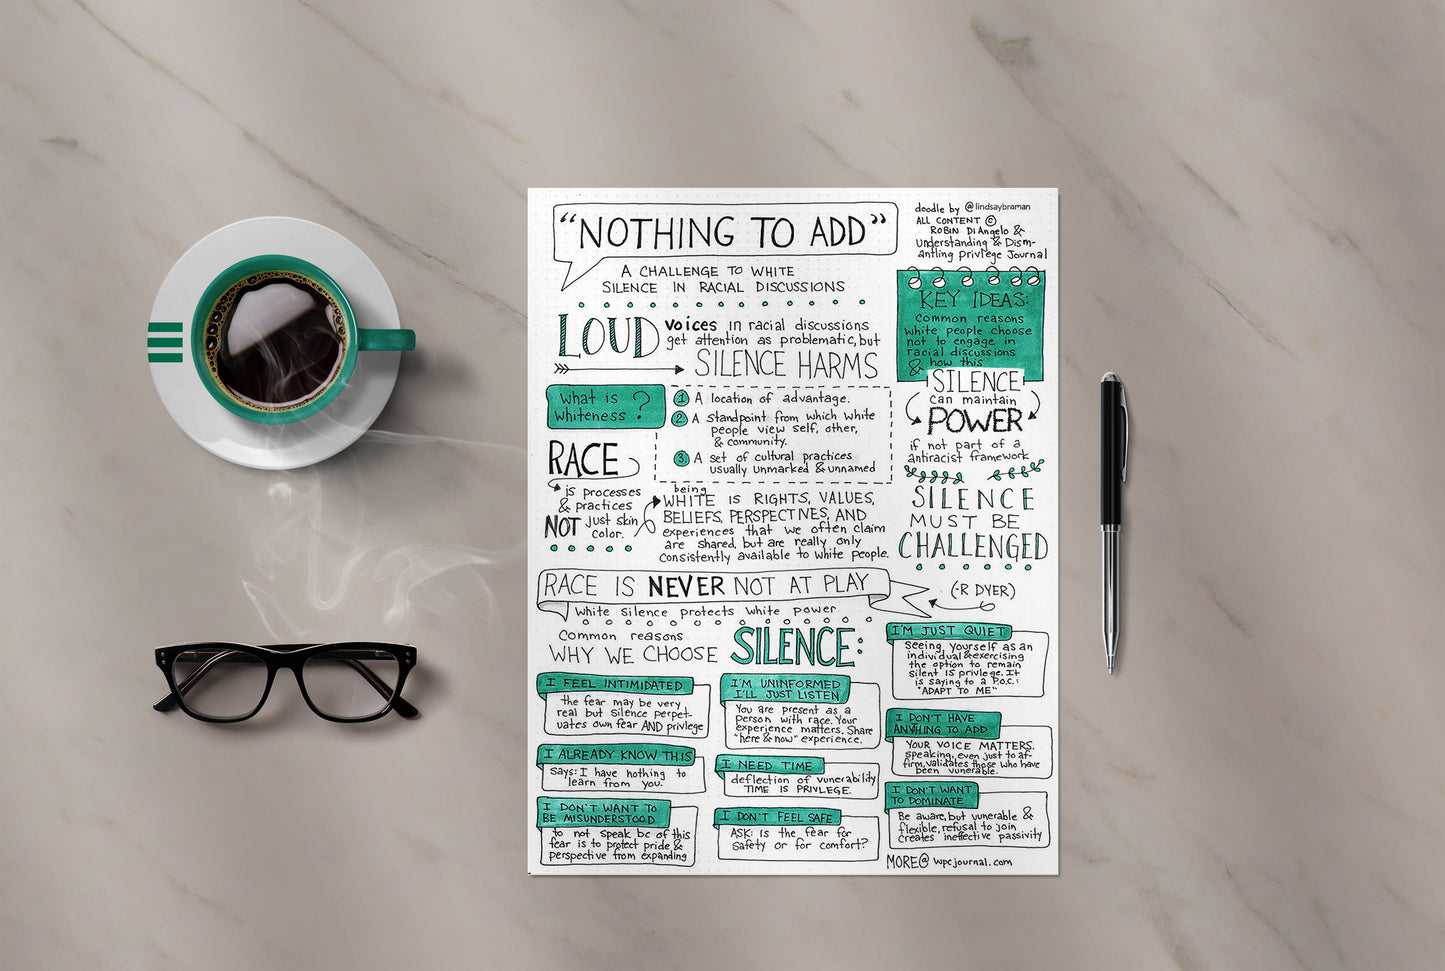 "NOTHING TO ADD"
A CHALLENGE TO WHITE
SILENCE IN RACIAL DISCUSSIONS
doodle by @lindsaybraman
ALL CONTENT ©
ROBIN DiAngelo &
Understanding & Dism-
antling privlege Journal
LOUD voices in racial discussions
get attention as problematic, but
SILENCE HARMS
KEY IDEAS:
Common reasons
white people choose
not to engage in
racial discussions
& how this
SILENCE
can maintain
POWER
if not part of a
antiracist framework
SILENCE
MUST BE
CHALLENGED
What is
Whiteness?
1 A location of advantage.
2 A standpoint from which white
people view self, other,
& community.
3. A set of cultural practices
usually unmarked & unnamed
RACE
is processes
& practices
NOT just skin
color.
being
WHITE IS RIGHTS, VALUES,
BELIEFS, PERSPECTIVES, AND
experiences that we often claim
are shared, but are really only
consistently available to white people.
RACE IS NEVER NOT AT PLAY
(-R DYER)
White Silence protects white power
Common reasons
WHY WE CHOOSE SILENCE:
I FEEL INTIMIDATED
the fear may be very
real but silence perpet-
uates own fear AND privlege
I ALREADY KNOW THIS
Says: I have nothing to
learn from you.
I DON'T WANT TO
BE MISUNDERSTOOD
to not speak bc of this
fear is to protect pride &
perspective from expanding
I'M UNINFORMED
I'LL JUST LISTEN
You are present as a
person with race. Your
experience matters. Share
"here & now" experience.
I NEED TIME
deflection of vunerability
TIME IS PRIVLEGE.
I DON'T FEEL SAFE
ASK: is the fear for
safety or for comfort?
I'M JUST QUIET
Seeing yourself as an
individual & exercising
the option to remain
silent IS privlege. It
is saying to a P.O.C.:
"ADAPT TO ME"
I DON'T HAVE
ANYHING TO ADD
YOUR VOICE MATTERS.
speaking, even just to af-
firm, validates those who have
been vunerable.
I DON'T WANT
TO DOMINATE
Be aware, but vunerable &
flexible, refusal to join
creates ineffective passivity
MORE@ wpcjournal.com